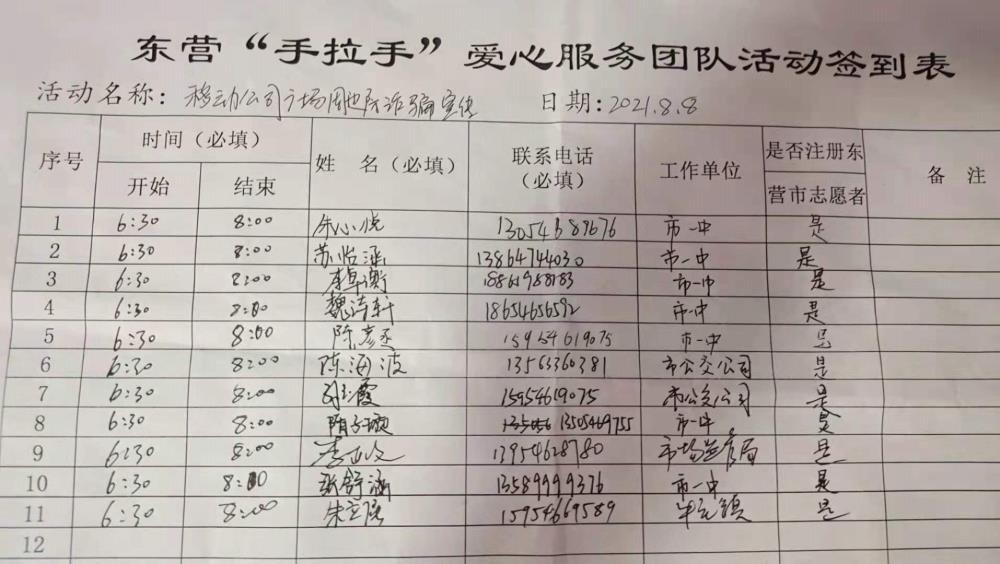 东营“手拉手”爱心服务团队活动签到表
活动名称：移动公司广场周边防诈骗宣传 日期：2021.8.8
序号 时间（必填） 姓 名（必填） 联系电话（必填） 工作单位 是否注册东营市志愿者 备 注
开始 结束
1 6:30 8:00 朱心悦 13054389676 市一中 是
2 6:30 8:00 苏怡涵 13864744030 市一中 是
3 6:30 8:00 李卓衡 市一中 是
4 6:30 8:00 魏 轩 18654656592 市一中 是
5 6:30 8:00 陈彦 15954619075 市一中 是
6 6:30 8:00 陈海波 13563360381 市公交公司 是
7 6:30 8:00 霞 15954619075 市公交公司 是
8 6:30 8:00 隋子 13505469755 市一中 是
9 6:30 8:00 李 13954628780 市场监管局 是
10 6:30 8:00 张舒涵 13589999376 市一中 是
11 6:30 8:00 朱 15954669589 牛庄镇 是
12